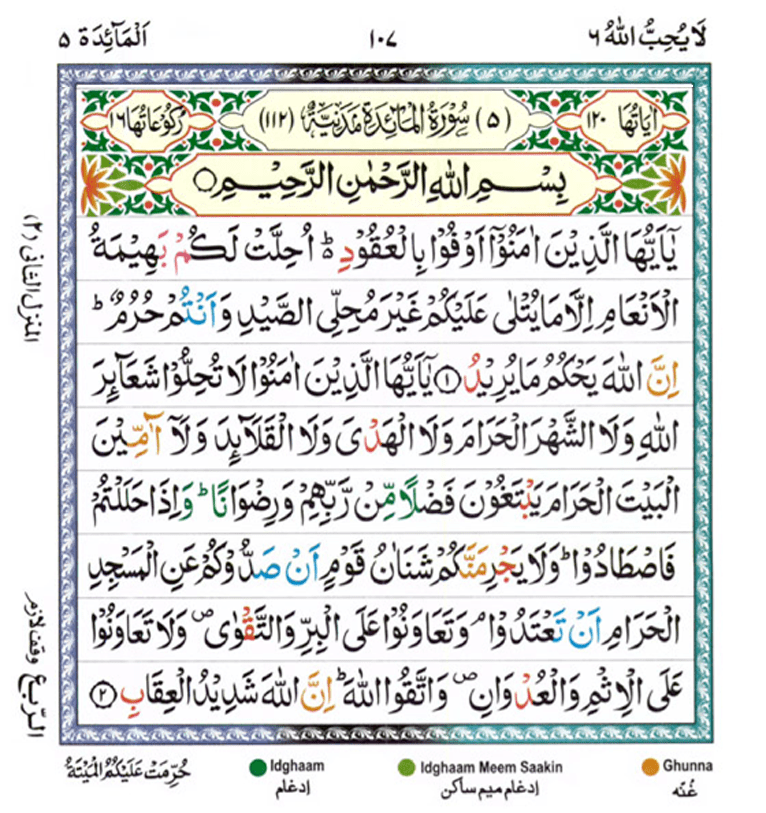 لَا يُحِبُّ اللّٰهُ ٦
١٠٧
اَلْمَآئِدَة ٥
اٰيَاتُهَا ١٢٠
(٥) سُوْرَةُ الْمَآئِدَةِ مَدَنِيَّةٌ (١١٢)
رُكُوْعَاتُهَا ١٦
بِسْمِ اللّٰهِ الرَّحْمٰنِ الرَّحِيْمِ ۝
يٰۤاَيُّهَا الَّذِيْنَ اٰمَنُوْۤا اَوْفُوْا بِالْعُقُوْدِ ؕ اُحِلَّتْ لَكُمْ بَهِيْمَةُ
الْاَنْعَامِ اِلَّا مَا يُتْلٰى عَلَيْكُمْ غَيْرَ مُحِلِّى الصَّيْدِ وَاَنْتُمْ حُرُمٌ ؕ
اِنَّ اللّٰهَ يَحْكُمُ مَا يُرِيْدُ ۝١ يٰۤاَيُّهَا الَّذِيْنَ اٰمَنُوْا لَا تُحِلُّوْا شَعَآئِرَ
اللّٰهِ وَلَا الشَّهْرَ الْحَرَامَ وَلَا الْهَدْىَ وَلَا الْقَلَآئِدَ وَلَاۤ آٰمِّيْنَ
الْبَيْتَ الْحَرَامَ يَبْتَغُوْنَ فَضْلًا مِّنْ رَّبِّهِمْ وَرِضْوَانًا ؕ وَاِذَا حَلَلْتُمْ
فَاصْطَادُوْا ؕ وَلَا يَجْرِمَنَّكُمْ شَنَاٰنُ قَوْمٍ اَنْ صَدُّوْكُمْ عَنِ الْمَسْجِدِ
الْحَرَامِ اَنْ تَعْتَدُوْا ۘ وَتَعَاوَنُوْا عَلَى الْبِرِّ وَالتَّقْوٰى ۪ وَلَا تَعَاوَنُوْا
عَلَى الْاِثْمِ وَالْعُدْوَانِ ۪ وَاتَّقُوا اللّٰهَ ؕ اِنَّ اللّٰهَ شَدِيْدُ الْعِقَابِ ۝٢
المنزل الثانی (٢)
وقف لازم
الرّبع
حُرِّمَتْ عَلَيْكُمُ الْمَيْتَةُ
Idghaam
إدغام
Idghaam Meem Saakin
إدغام ميم ساكن
Ghunna
غُنّه